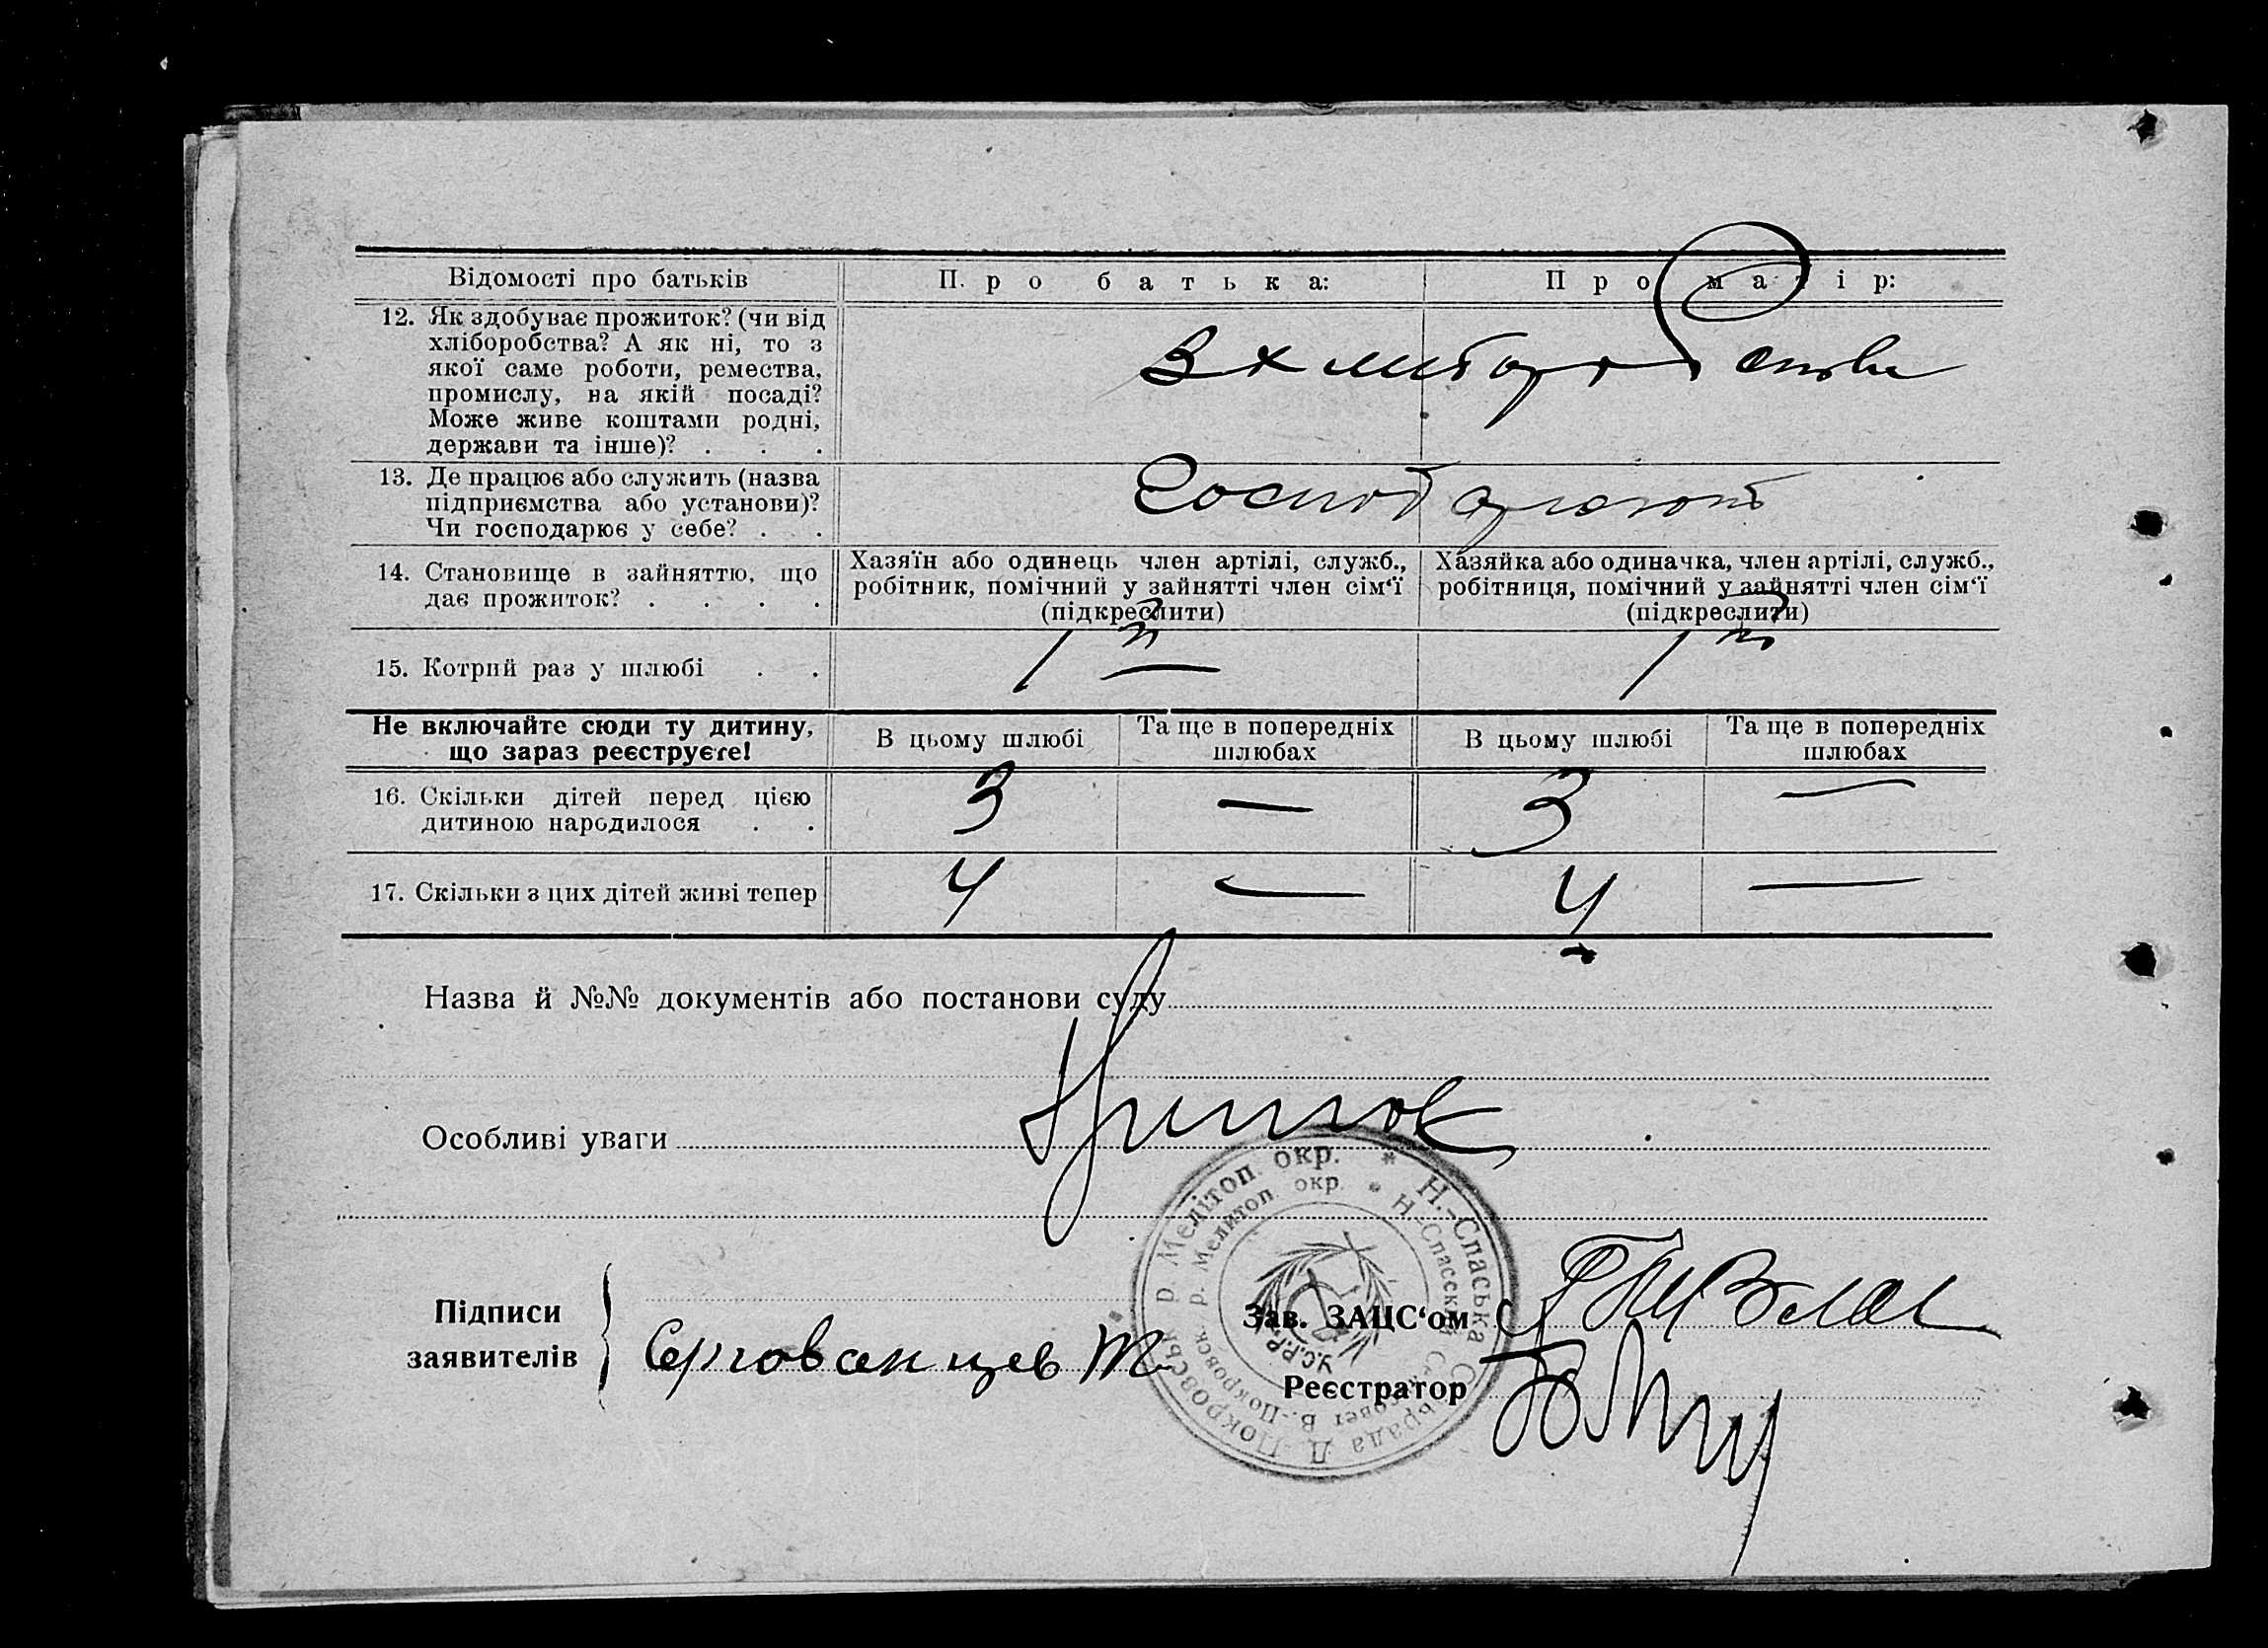 Відомості про батьків
П р о б а т ь к а:
П р о м а т і р:
12. Як здобуває прожиток? (чи від
хліборобства? А як ні, то з
якої саме роботи, ремества,
промислу, на якій посаді?
Може живе коштами родні,
держави та інше)? . . .
З хліборобства
13. Де працює або служить (назва
підприємства або установи)?
Чи господарює у себе? . .
Господарюють
14. Становище в зайняттю, що
дає прожиток? . . . .
Хазяїн або одинець член артілі, служб.,
робітник, помічний у зайнятті член сім‘ї
(підкреслити)
Хазяйка або одиначка, член артілі, служб.,
робітниця, помічний у зайнятті член сім‘ї
(підкреслити)
15. Котрий раз у шлюбі . .
1й
1й
Не включайте сюди ту дитину,
що зараз реєструєте!
В цьому шлюбі
Та ще в попередніх
шлюбах
В цьому шлюбі
Та ще в попередніх
шлюбах
16. Скільки дітей перед цією
дитиною народилося . .
3 — 3 —
17. Скільки з цих дітей живі тепер
4 — 4 —
Назва й №№ документів або постанови суду
Особливі уваги
Підписи
заявителів
Зав. ЗАЦС‘ом
Реєстратор
Н.-Спаська Сільрада Д.-Покровськ р. Мелітоп. окр.
Н.-Спасский Сельсовет В.-Покровск. р. Мелитоп. окр.
У.С.Р.Р.